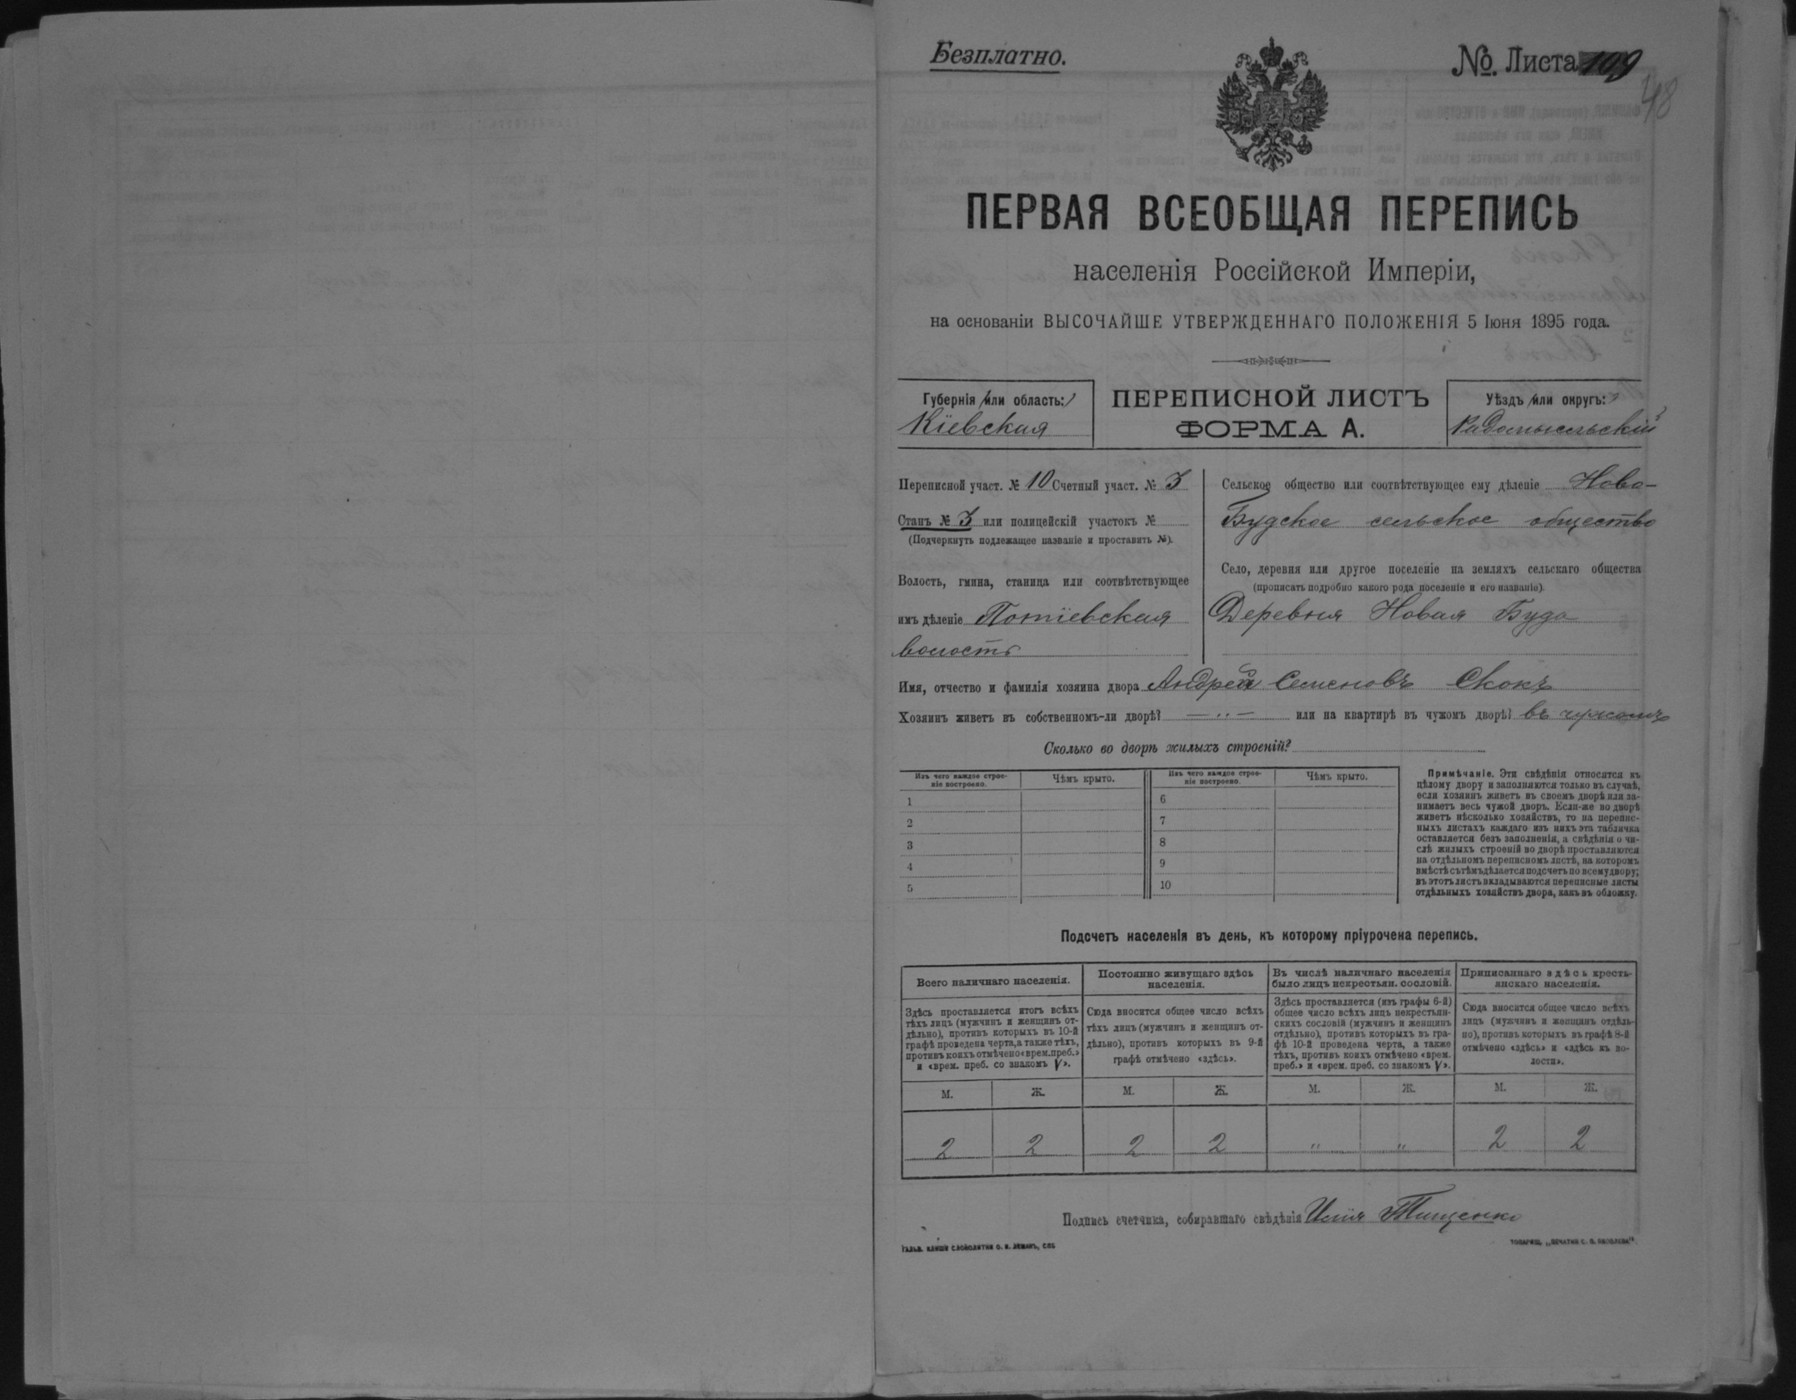 Безплатно.
№. Листа 109
48
ПЕРВАЯ ВСЕОБЩАЯ ПЕРЕПИСЬ
населенія Россійской Имперіи,
на основаніи ВЫСОЧАЙШЕ УТВЕРЖДЕННАГО ПОЛОЖЕНІЯ 5 Іюня 1895 года.
Губернія или область:
Кіевская
ПЕРЕПИСНОЙ ЛИСТЪ
ФОРМА А.
Уѣздъ или округъ:
Радомысльскій
Переписной участ. № 10 Счетный участ. № 3
Станъ № 3 или полицейскій участокъ №
(Подчеркнуть подлежащее названіе и проставить №).
Волость, гмина, станица или соотвѣтствующее
имъ дѣленіе Потіевская
волость
Сельское общество или соотвѣтствующее ему дѣленіе Ново-
Будское сельское общество
Село, деревня или другое поселеніе на земляхъ сельскаго общества
(прописать подробно какого рода поселеніе и его названіе).
Деревня Новая Буда
Имя, отчество и фамилія хозяина двора Андрей Семеновъ Скокъ
Хозяинъ живетъ въ собственномъ-ли дворѣ? — „ — или на квартирѣ въ чужомъ дворѣ? въ чужомъ
Сколько во дворѣ жилыхъ строеній?
Изъ чего каждое строе-
ніе построено.
Чѣмъ крыто.
Изъ чего каждое строе-
ніе построено.
Чѣмъ крыто.
1
2
3
4
5
6
7
8
9
10
Примѣчаніе. Эти свѣдѣнія относятся къ
цѣлому двору и заполняются только въ случаѣ,
если хозяинъ живетъ въ своемъ дворѣ или за-
нимаетъ весь чужой дворъ. Если-же во дворѣ
живетъ нѣсколько хозяйствъ, то на перепис-
ныхъ листахъ каждаго изъ нихъ эта табличка
оставляется безъ заполненія, а свѣдѣнія о чи-
слѣ жилыхъ строеній во дворѣ проставляются
на отдѣльномъ переписномъ листѣ, на которомъ
вмѣстѣ съ тѣмъ дѣлается подсчетъ по всему двору;
въ этотъ листъ вкладываются переписные листы
отдѣльныхъ хозяйствъ двора, какъ въ обложку.
Подсчетъ населенія въ день, къ которому пріурочена перепись.
Всего наличнаго населенія.
Здѣсь проставляется итогъ всѣхъ
тѣхъ лицъ (мужчинъ и женщинъ от-
дѣльно), противъ которыхъ въ 10-й
графѣ проведена черта, а также тѣхъ,
противъ коихъ отмѣчено «врем. преб.»
и «врем. преб. со знакомъ V».
Постоянно живущаго здѣсь
населенія.
Сюда вносится общее число всѣхъ
тѣхъ лицъ (мужчинъ и женщинъ от-
дѣльно), противъ которыхъ въ 9-й
графѣ отмѣчено «здѣсь».
Въ числѣ наличнаго населенія
было лицъ некрестьян. сословій.
Здѣсь проставляется (изъ графы 6-й)
общее число всѣхъ лицъ некрестьян-
скихъ сословій (мужчинъ и женщинъ
отдѣльно), противъ которыхъ въ гра-
фѣ 10-й проведена черта, а также
тѣхъ, противъ коихъ отмѣчено «врем.
преб.» и «врем. преб. со знакомъ V».
Приписаннаго здѣсь кресть-
янскаго населенія.
Сюда вносится общее число всѣхъ
лицъ (мужчинъ и женщинъ отдѣль-
но), противъ которыхъ въ графѣ 8-й
отмѣчено «здѣсь» и «здѣсь въ во-
лости».
М. Ж. М. Ж. М. Ж. М. Ж.
2 2 2 2 „ „ 2 2
Подпись счетчика, собиравшаго свѣдѣнія Илія Тищенко